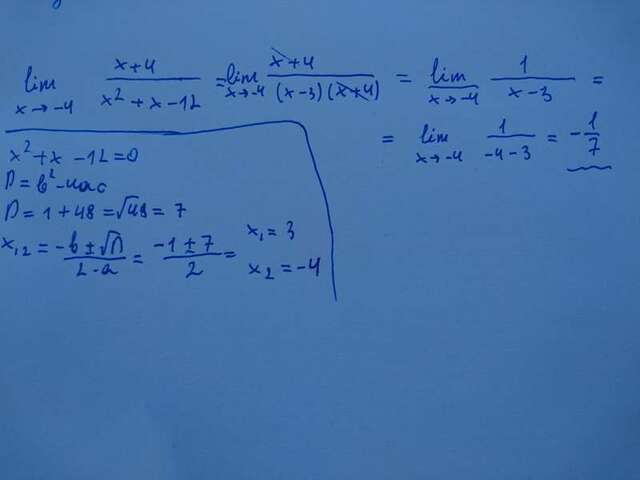 lim x→-4 x+4 / x²+x-12 = lim x→-4 x+4 / (x-3)(x+4) = lim x→-4 1 / x-3 =
= lim x→-4 1 / -4-3 = -1/7
x²+x-12=0
D=b²-4ac
D=1+48=√49=7
x₁,₂ = -b±√D / 2·a = -1±7 / 2 = x₁=3
x₂=-4